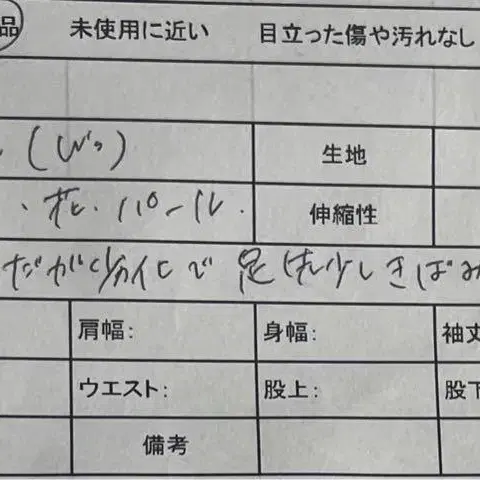 品 未使用に近い 目立った傷や汚れなし
生地
・花・パール・ 伸縮性
だが劣化で 足先少しきばみ
肩幅: 身幅: 袖丈
ウエスト: 股上: 股下
備考